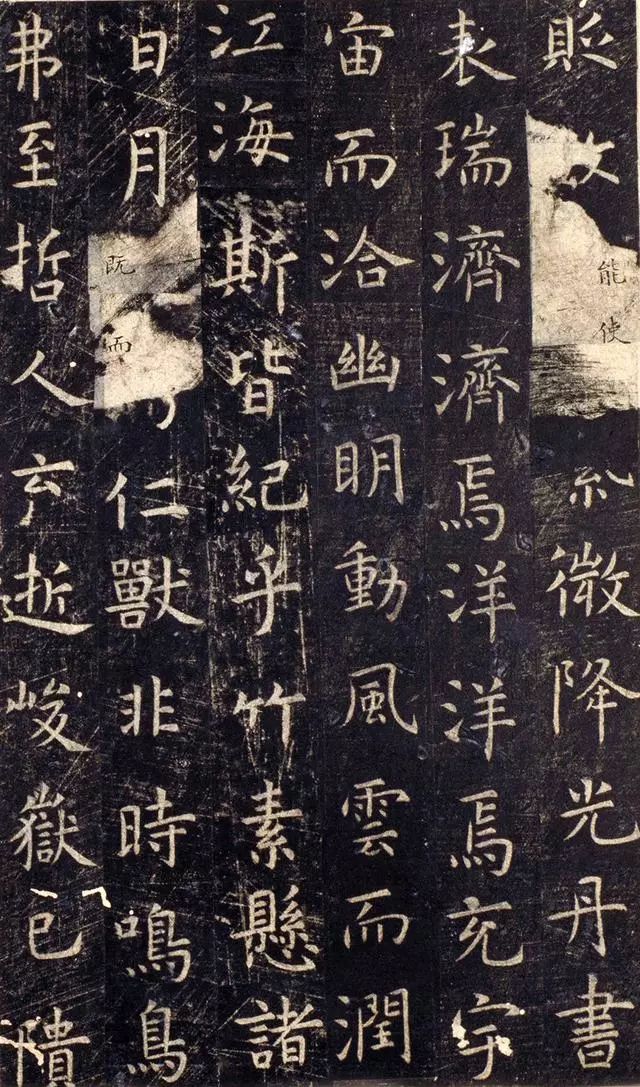 貶能使微降光丹書
表瑞濟濟焉洋洋焉充宇
宙而洽幽明動風雲而潤
江海斯皆紀乎竹素懸諸
日月既而仁獸非時鳴鳥
弗至哲人云逝峻嶽已隤